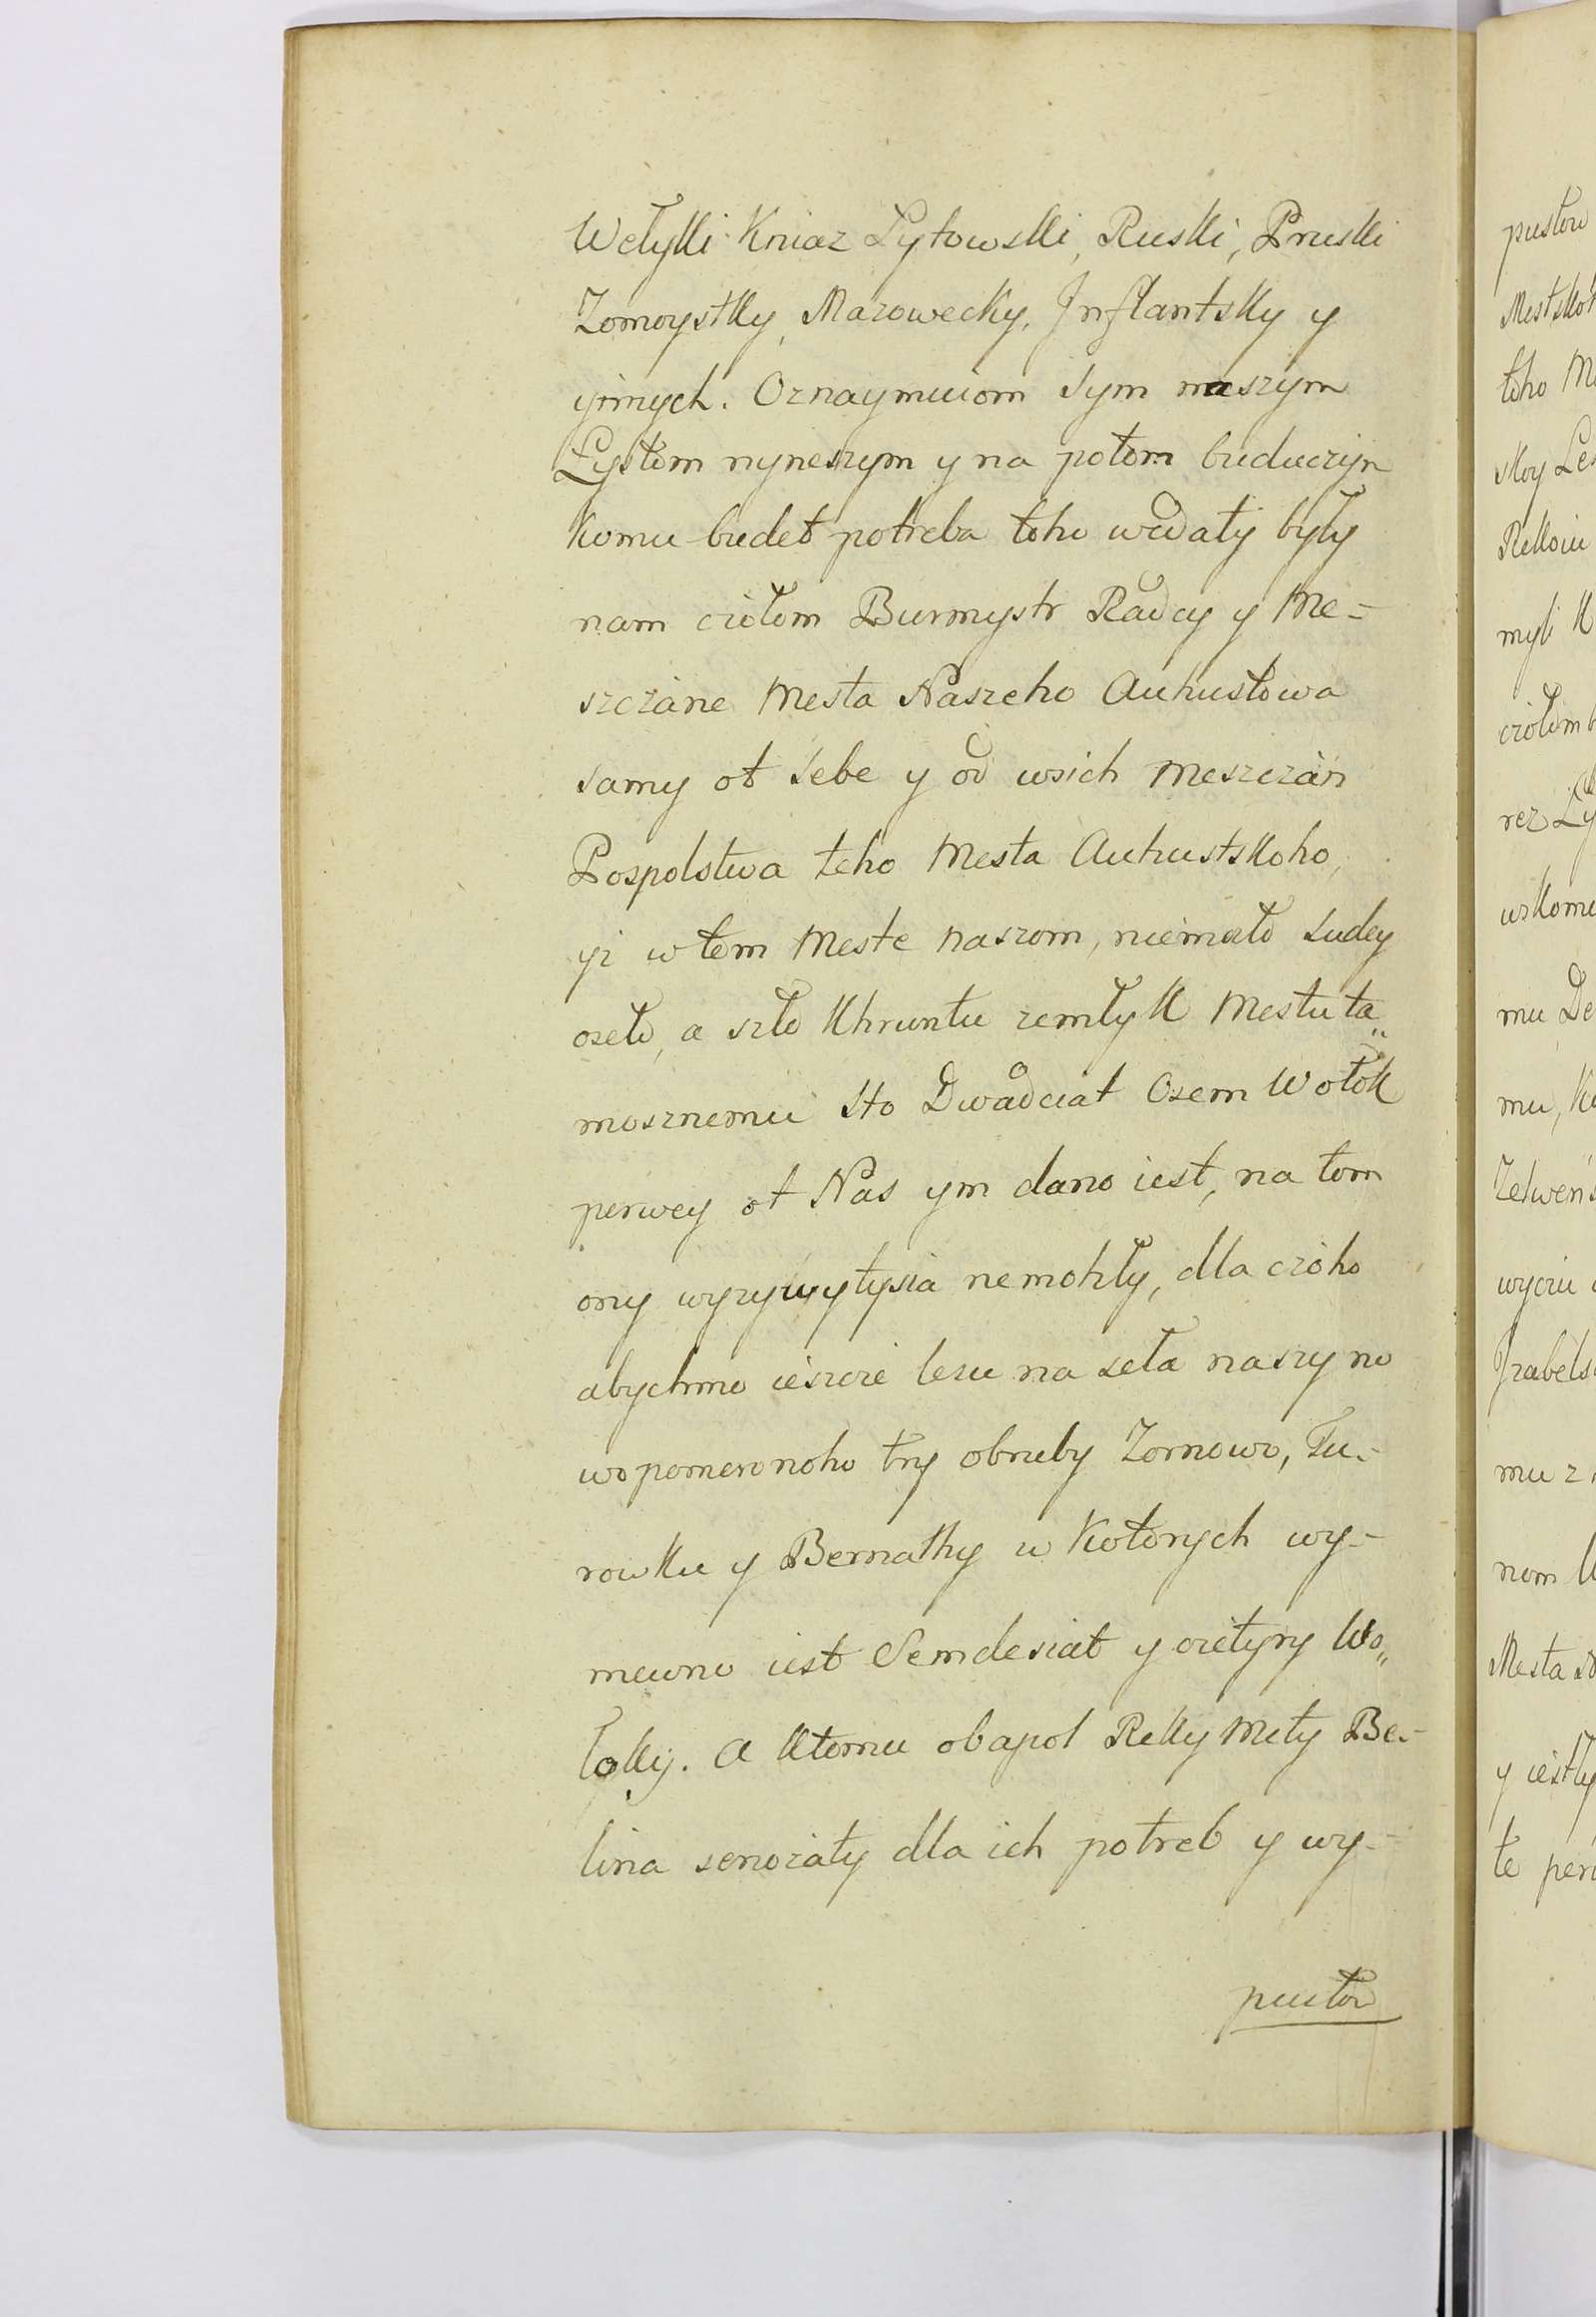 Wełykki Kniaz Lytowskki, Ruskki, Pruskki
Zomoystkky, Mazowecky, Inflantskky y
yinnych. Oznaymuiom sym naszym
Łystom nyneszym y na potom buduczym
Komu budet potreba toho wedaty były
nam czołom Burmystr Radcy y Me-
szczane Mesta Naszeho Auhustowa
samy ot sebe y od wsich Meszczan
Pospolstwa teho Mesta Auhustskkoho,
yż w tem Meste naszom, niemało ludey
oseło, a szto Khruntu zemły k Mestu ta„
mosznemu sto Dwadciat Osem Wołok
perwey ot Nas ym dano iest, na tom
ony wyzywytysia ne mohły, dla czoho
abychmo ieszcze lesu na seła naszy no
wo pomerenoho try obruby Zornowo, Tu-
rowku y Bernatky w Kotorych wy-
merено iest Semdesiat y czetyry Wo„
łokky. A Ktomu obapol Rekky Mety Be-
lina senozaty dla ich potreb y wy-
pustow
pustow
Mestskoh
toho Me
skoy Les
Rekkoiu
myli K
czołom b
rez Ły
wskomu
mu De
mu, Ko
Zelwens
wyczu
Izabels
mu z
nom W
Mesta
y iestly
te per